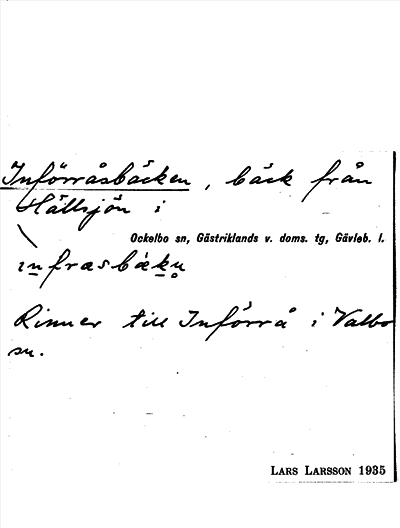 Införråsbäcken, bäck från
Hällsjön i
Ockelbo sn, Gästriklands v. doms. tg, Gävleb. l.
ɪnfrasbäkn̥
Rinner till Införrå i Valbo
sn.
LARS LARSSON 1935